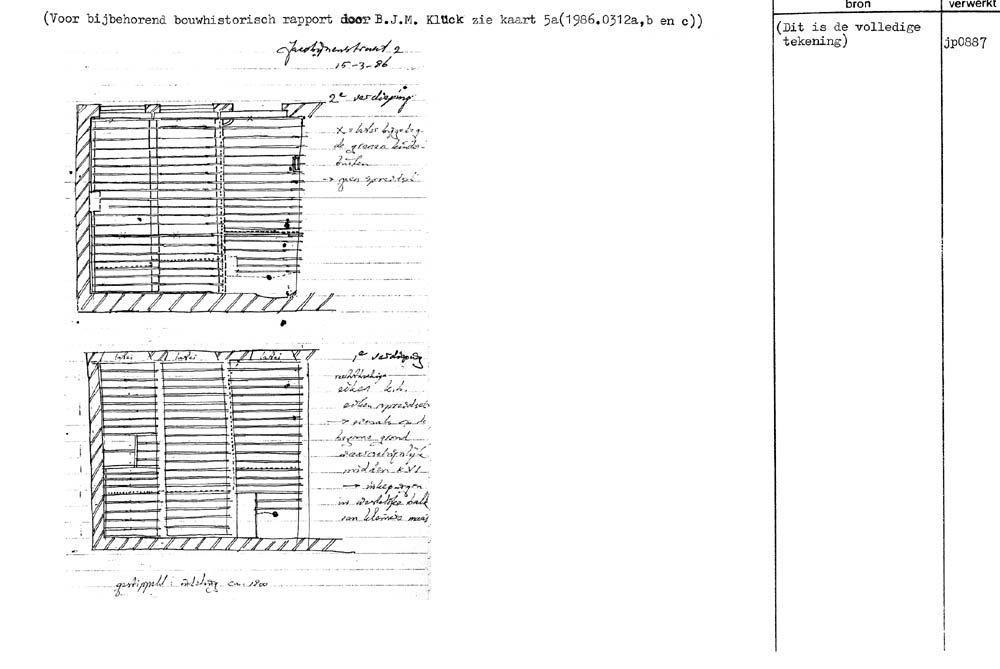 (Voor bijbehorend bouwhistorisch rapport door B.J.M. Klück zie kaart 5a(1986.0312a,b en c))
bron
verwerkt
(Dit is de volledige
tekening)
jp0887
Jacobijnenstraat 2
15-3-86
2e verdieping
x = later
de grenen kinder-
→ geen spreidsel
1e verdieping
latei
latei
latei
rechthoekige
eiken k.b.
eiken spreidsel
→ op de
begane grond
waarschijnlijk
midden XVI
→ inkepingen
in
van kleinere
gestippeld : indeling ca. 1800